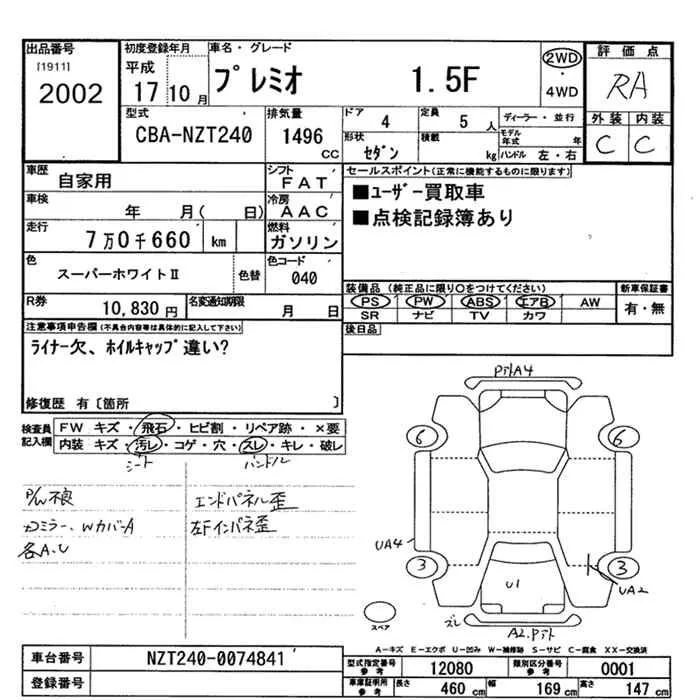 出品番号
[1911]
2002
初度登録年月
平成
17 10 月
車名・グレード
プレミオ 1.5F
2WD
・
4WD
評価点
RA
外装 内装
C C
型式
CBA-NZT240
排気量
1496
CC
ドア
4
定員
5 人
形状
セダン
積載
kg
ディーラー・並行
モデル年式 年
ハンドル 左・右
車歴
自家用
シフト
FAT
車検
年 月( 日)
冷房
AAC
走行
7万0千660 km
燃料
ガソリン
色
スーパーホワイトⅡ
色替
色コード
040
R券
10,830 円
名変通知期限
月 日
セールスポイント(正常に機能するものに限ります)
■ユーザー買取車
■点検記録簿あり
装備品(純正品に限り○をつけてください)
新車保証書
PS PW ABS エアB AW
SR ナビ TV カワ
有・無
後日品
注意事項申告欄(不具合内容等は具体的に記入して下さい)
ライナー欠、ホイルキャップ違い?
修復歴 有〔箇所 〕
検査員
記入欄
FW キズ・飛石・ヒビ割・リペア跡・×要
内装 キズ・汚レ・コゲ・穴・スレ・キレ・破レ
シート ハンドル
P/W不良
エンドパネル歪
カミラー、Wカバー A
左Fインパネ歪
各A・U
A4
6 6
UA4
3 3
UA2
U1
スレ
A2.
スペア
A-キズ E-エクボ U-凹み W-補修跡 S-サビ C-腐食 XX-交換済
車台番号
NZT240-0074841
登録番号
型式指定番号
参考
12080
類別区分番号
参考
0001
車庫証明用
参考
長さ
460 cm
幅
169 cm
高さ
147 cm